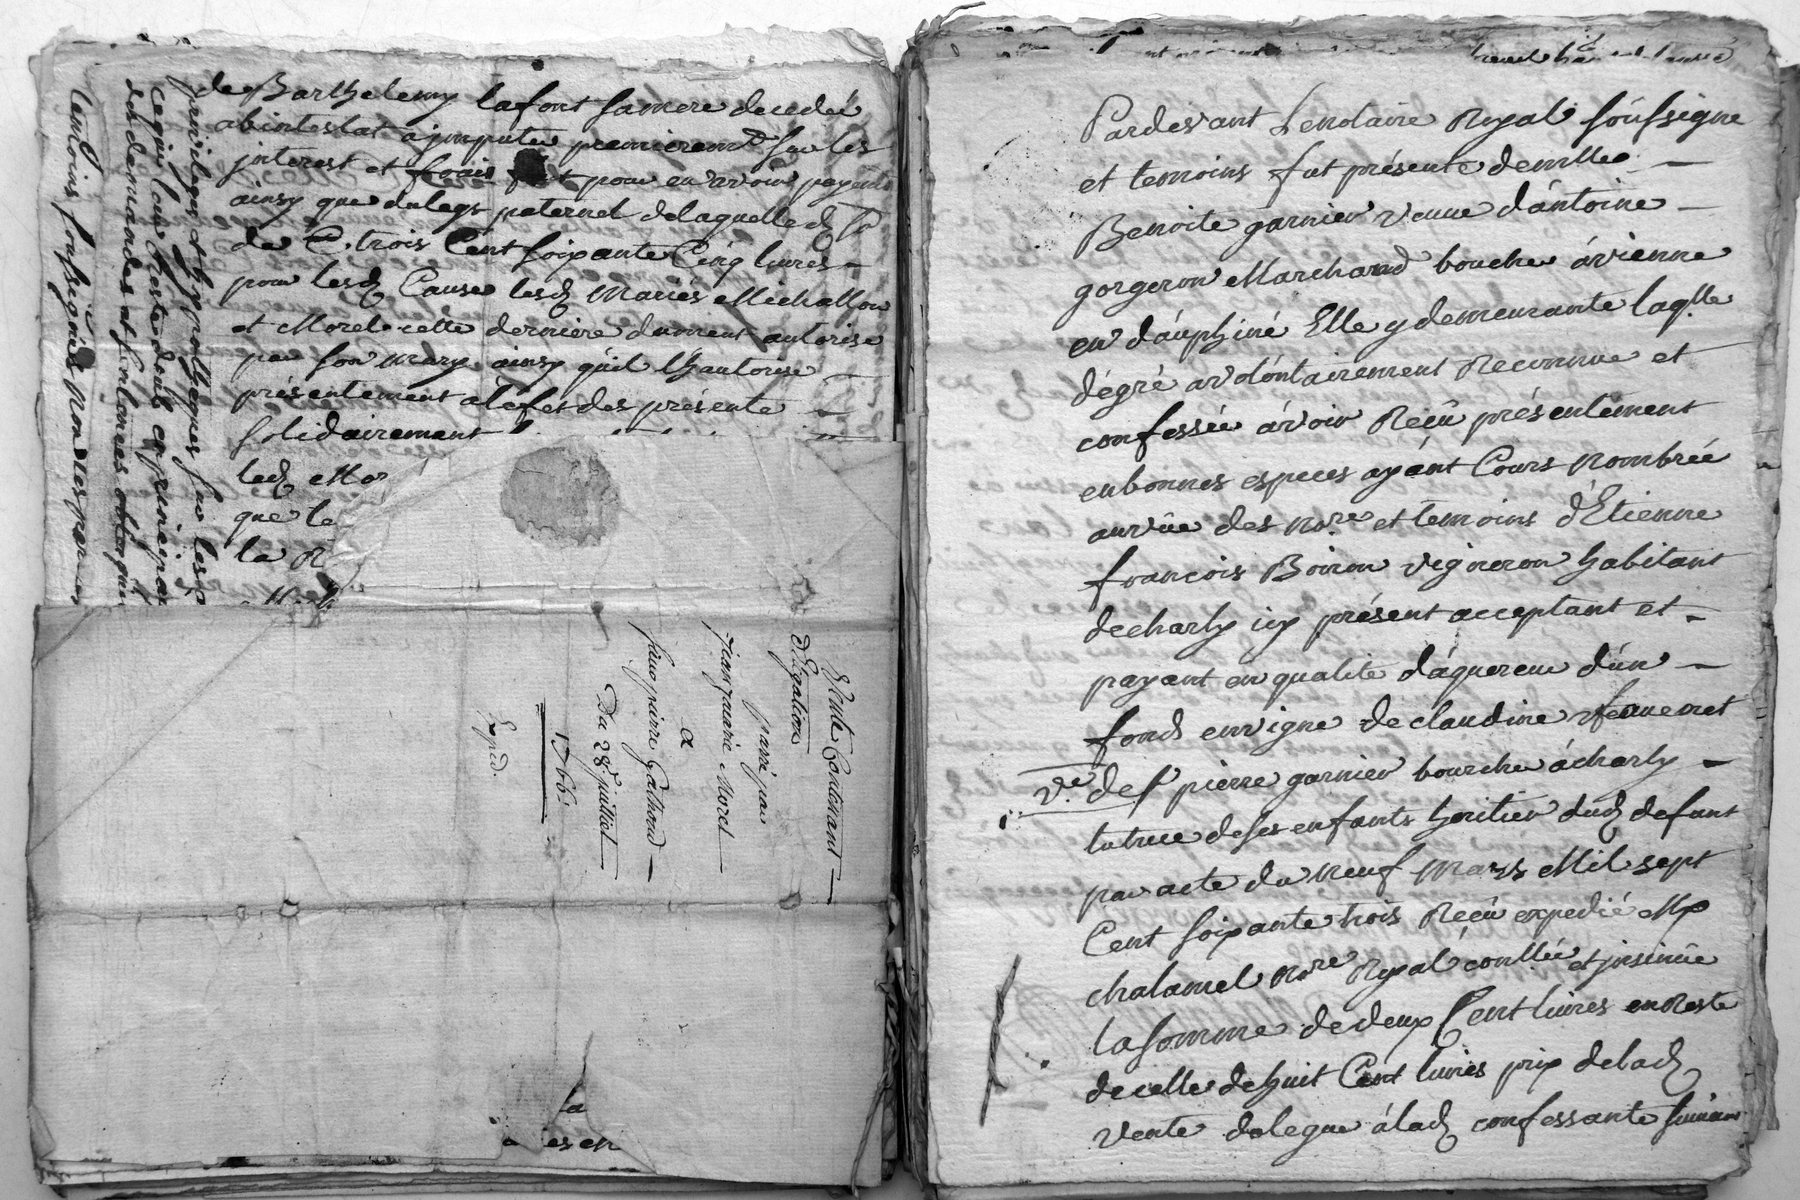 de Barthelemy lafont sa mere decedée
abintestat a jmputer premierem.t sur les
jnterest et frais pour en avoir payement
ainsy que du legs paternel de laquelle d
de trois Cent soixante Cinq livres
pour lesd. Causes lesd. Mariés Michallon
et Morel cette derniere dument autorisé
par son mary ainsy quil lhautorise
présentement a lefet des présente
solidairement
led. Mo
que le
la R
privileges et hypotheques sur les
ce qui leur reste deub en principa
des demandes et sentences obtenu
temoins soussignés non les par
Vente Contenant
D'Egalation
passé par
Jeanz marie Morel
a
sieur pierre Gathoud
Du 28e juilliet
1766.
Exped.
la
es en
Pardevant Le notaire Royal soussigne
et temoins fut présente demlle
Benoite garnier veuve d'antoine
gorgeron Marchand boucher a vienne
en dauphiné Elle y demeurante laq.lle
dégré a volontairement Reconnue et
confessée avoir Reçû présentement
en bonnes especes ayant Cours nombrée
au vûe des no.re et temoins d'Etienne
françois Boiron vigneron habitant
de charly icy présent acceptant et
payant en qualite d'aquereur d'un
fond en vigne de claudine
v.e de f pierre garnier boucher à charly
tutrice de ses enfants heritier dud. defunt
par acte du neuf Mars Mil sept
Cent soixante trois Reçû expedié Me
chalamel no.re Royal conllée et jnsinüe
la somme de deux Cent livres en Reste
de celle de huit Cent livres prix de lad.
vente delegue à lad. confessante suivant